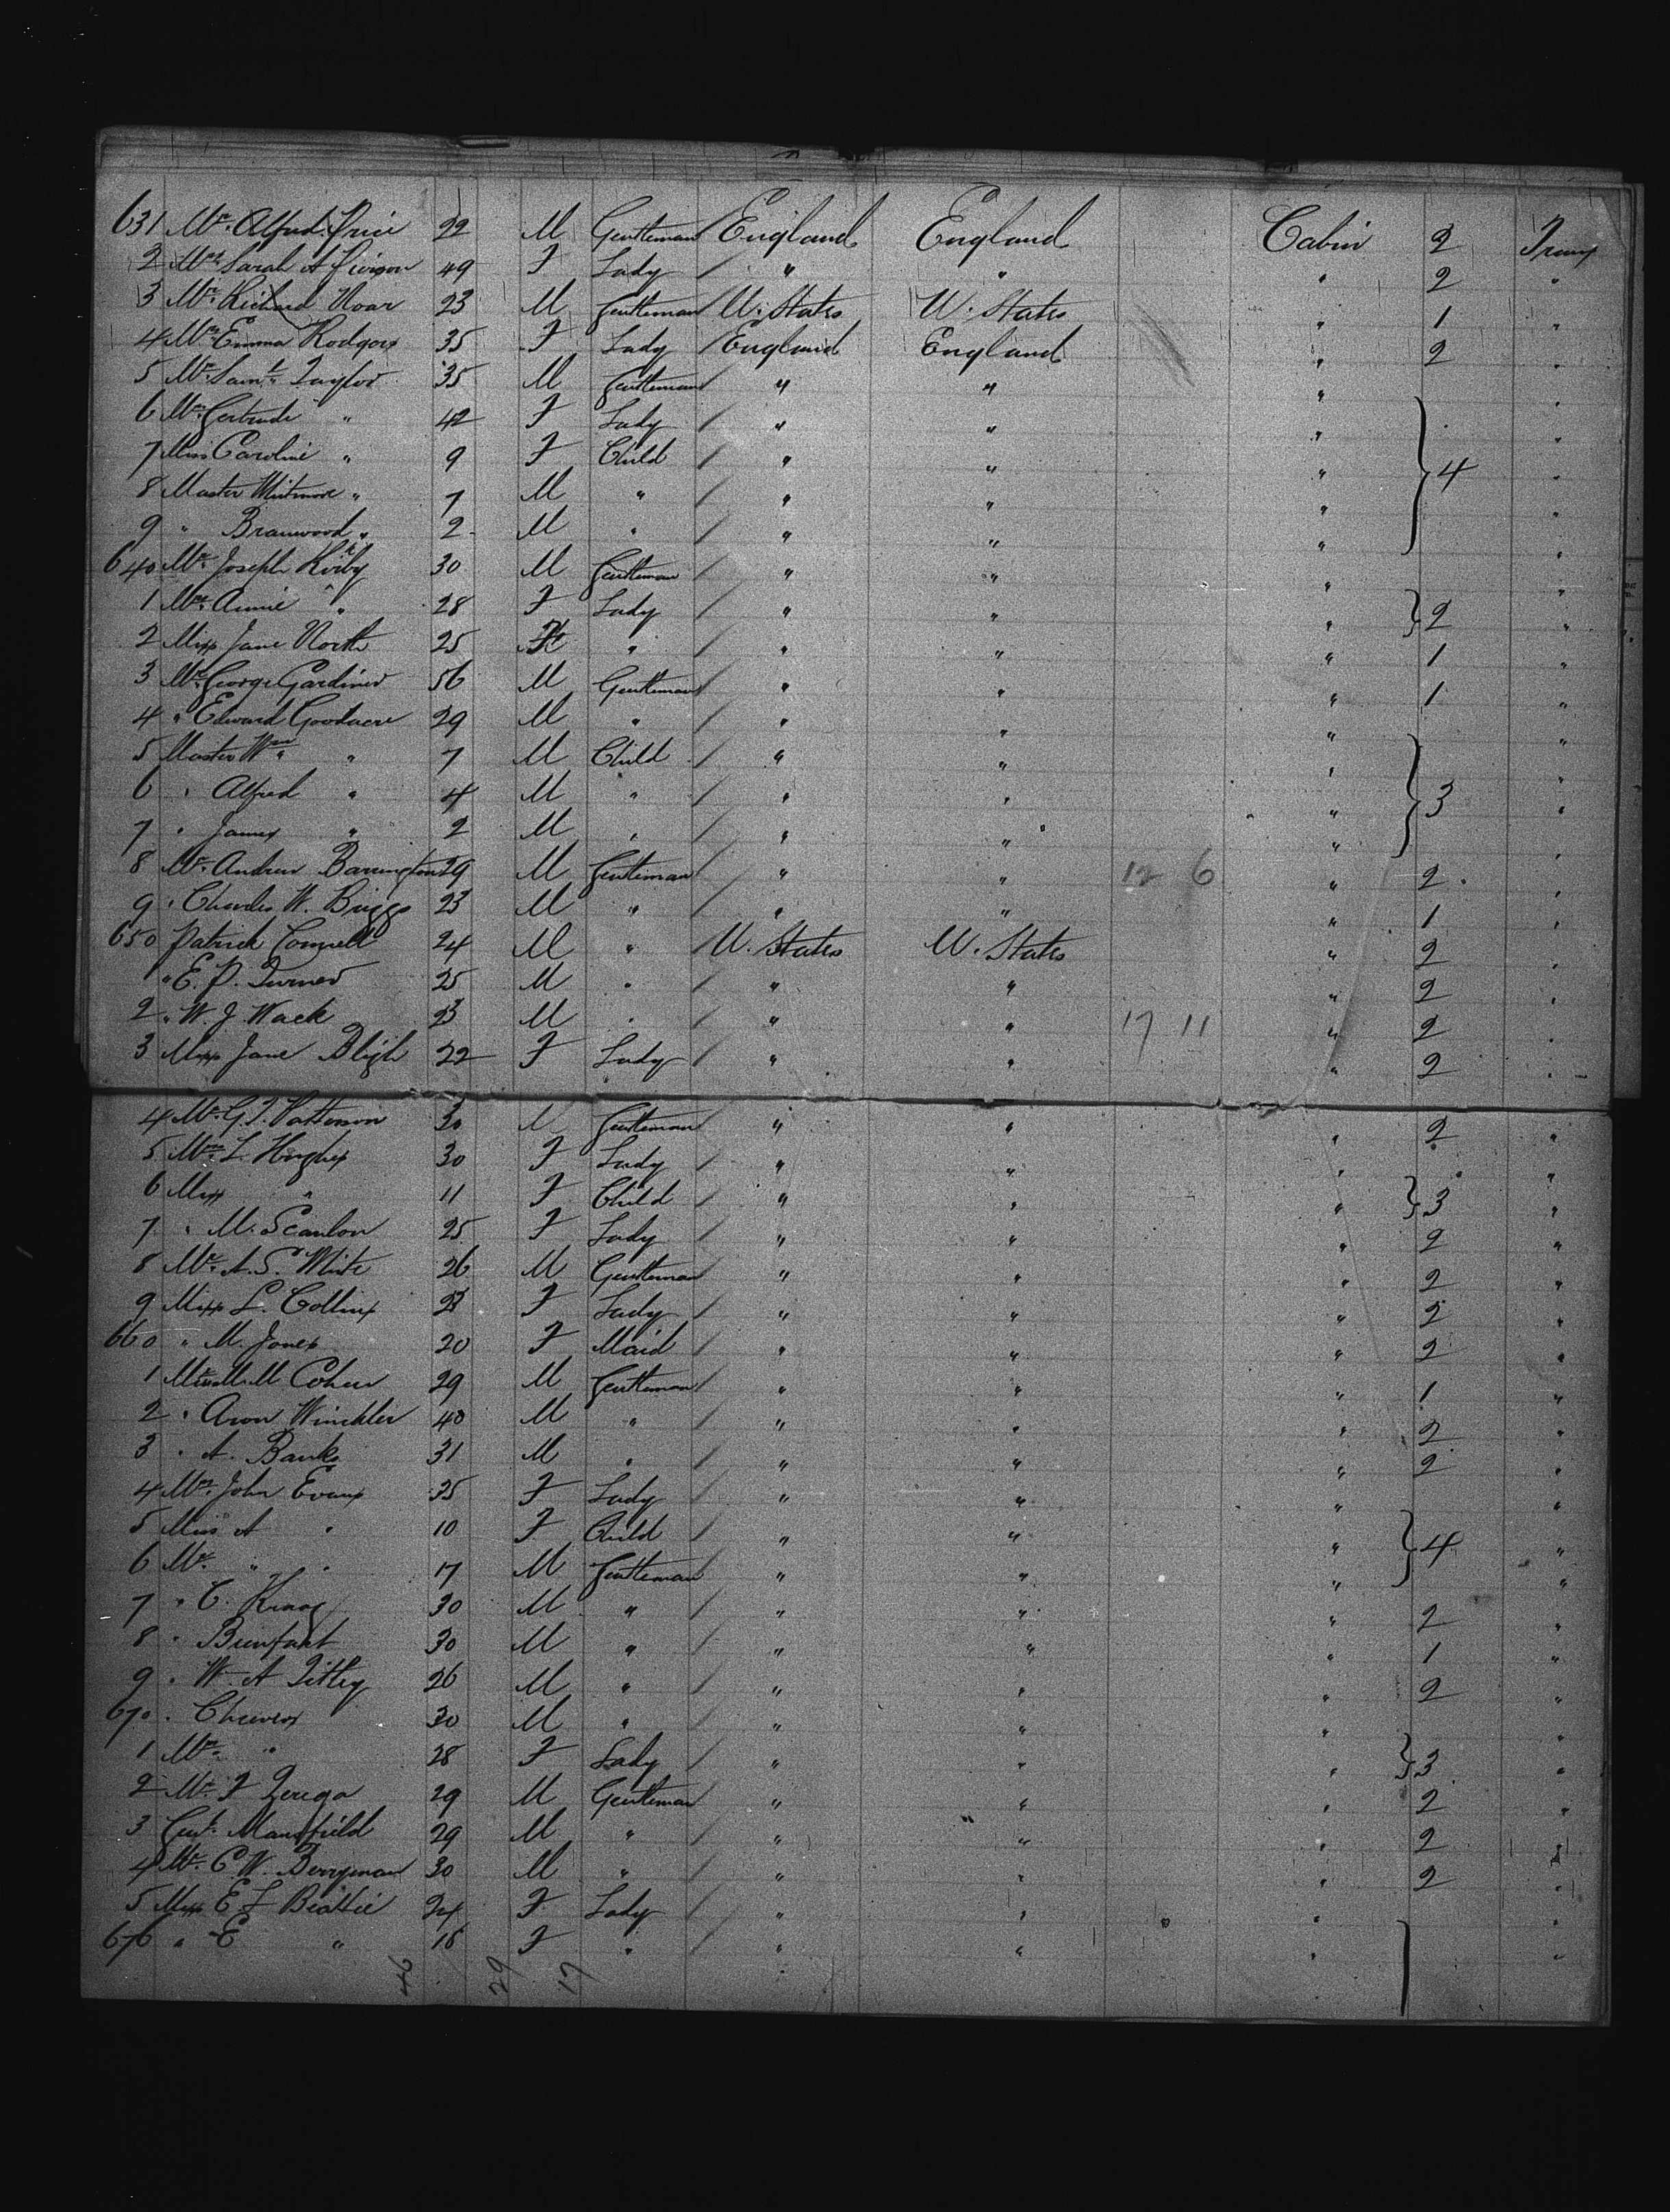 631 Mr. Alfred Price 22 M Gentleman England England Cabin 2 Trans
2 Mrs. Sarah A 49 F Lady / " " " 2 "
3 Mr. Richard Hoar 23 M Gentleman U. States U. States " 1 "
4 Mrs. Emma Rodgers 35 F Lady / England England " 2 "
5 Mr. Saml. Taylor 35 M Gentleman " " " "
6 Mrs. Gertrude " 42 F Lady / " " " "
7 Miss Caroline " 9 F Child / " " " 4 "
8 Master Whitmore " 7 M " / " " " "
9 " Bramwood " 2 M " / " " " "
640 Mr. Joseph Kirby 30 M Gentleman / " " " "
1 Mrs. Annie " 28 F Lady / " " " 2 "
2 Miss Jane North 25 F " / " " " 1 "
3 Mr. George Gardiner 56 M Gentleman / " " " 1 "
4 " Edward Goodacre 29 M " / " " " "
5 Master Wm. " 7 M Child / " " " "
6 " Alfred " 4 M " / " " " 3 "
7 " James " 2 M " / " " " "
8 Mr. Andrew Barrington 29 M Gentleman / " " 12 6 " 2 "
9 " Charles W. Briggs 23 M " / " " " 1 "
650 Patrick Connell 24 M " U. States U. States " 2 "
1 " E. P. Turner 25 M " " " " 2 "
2 " W. J. Wack 23 M " / " " 17 11 " 2 "
3 Miss Jane Bligh 22 F Lady / " " " 2 "
4 Mr. G. T. Patterson 30 M Gentleman " " " 2 "
5 Mrs. L. Hughes 30 F Lady / " " " "
6 Miss " 11 F Child / " " " 3 "
7 " M. Scanlon 25 F Lady / " " " 2 "
8 Mr. A. S. White 26 M Gentleman " " " 2 "
9 Miss L. Collins 23 F Lady / " " " 2 "
660 " M. Jones 20 F Maid / " " " 2 "
1 Cohen 29 M Gentleman / " " " 1 "
2 " Aron Winchler 40 M " / " " " 2 "
3 " A. Banks 31 M " / " " " 2 "
4 Mrs. John Evans 35 F Lady / " " " "
5 Miss A " 10 F Child / " " " 4 "
6 Mr. " " 17 M Gentleman " " " "
7 " C. 30 M " / " " " 2 "
8 " 30 M " / " " " 1 "
9 " W. A. Titley 26 M " / " " " 2 "
670 " 30 M " / " " " "
1 Mrs. " 28 F Lady / " " " 3 "
2 Mr. F Zerega 29 M Gentleman " " " 2 "
3 Mansfield 29 M " / " " " 2 "
4 Mr. C. W. Berryman 30 M " / " " " 2 "
5 Miss E. L Beattie 24 F Lady / " " " "
676 " E " 18 F " / " " " "
46 29 17